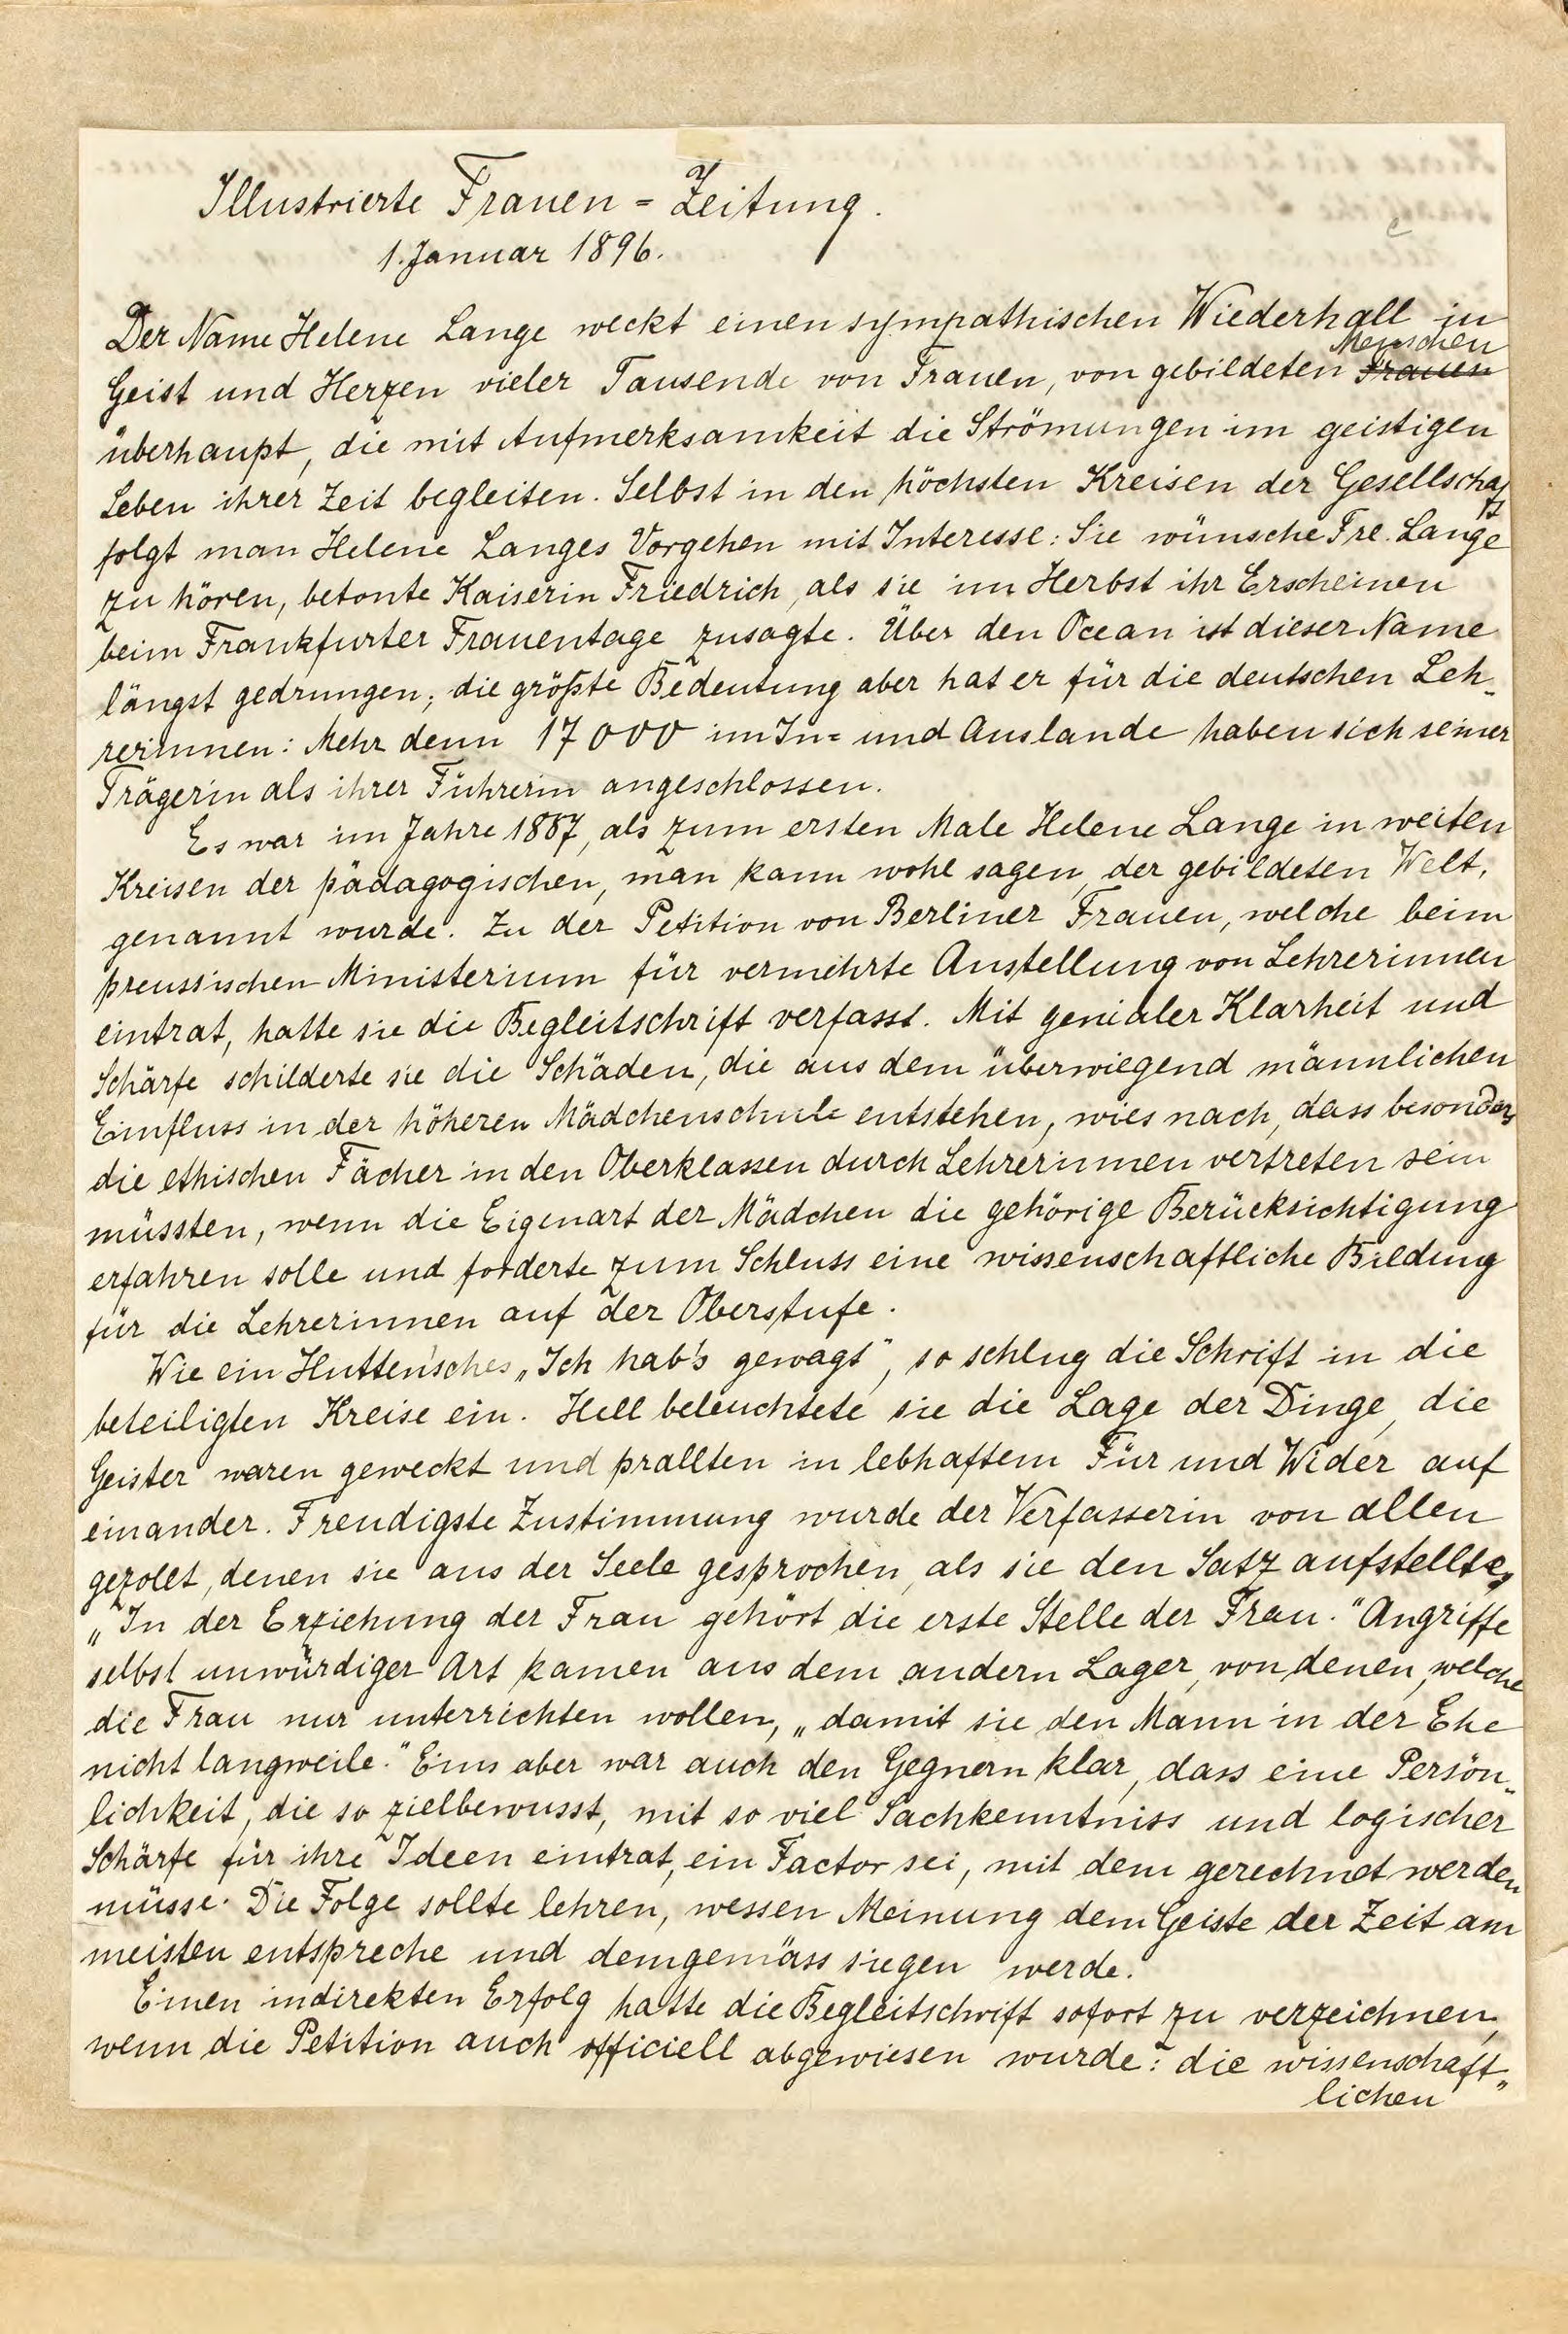 Illustrierte Frauen-Zeitung.
1. Januar 1896.
Der Name Helene Lange weckt einen sympathischen Wiederhall in
Menschen
Geist und Herzen vieler Tausende von Frauen, von gebildeten Frauen
überhaupt, die mit Aufmerksamkeit die Strömungen im geistigen
Leben ihrer Zeit begleiten. Selbst in den höchsten Kreisen der Gesellschaft
folgt man Helene Langes Vorgehen mit Interesse: Sie wünsche Frl. Lange
zu hören, betonte Kaiserin Friedrich, als sie im Herbst ihr Erscheinen
beim Frankfurter Frauentage zusagte. Über den Ocean ist dieser Name
längst gedrungen; die größte Bedeutung aber hat er für die deutschen Leh-
rerinnen: Mehr denn 17000 im In- und Auslande haben sich seiner
Trägerin als ihrer Führerin angeschlossen.
Es war im Jahre 1887, als zum ersten Male Helene Lange in weiten
Kreisen der pädagogischen, man kann wohl sagen, der gebildeten Welt,
genannt wurde. Zu der Petition von Berliner Frauen, welche beim
preussischen Ministerium für vermehrte Anstellung von Lehrerinnen
eintrat, hatte sie die Begleitschrift verfasst. Mit genialer Klarheit und
Schärfe schilderte sie die Schäden, die aus dem überwiegend männlichen
Einfluss in der höheren Mädchenschule entstehen, wies nach, dass besonders
die ethischen Fächer in den Oberklassen durch Lehrerinnen vertreten sein
müssten, wenn die Eigenart der Mädchen die gehörige Berücksichtigung
erfahren solle und forderte zum Schluss eine wissenschaftliche Bildung
für die Lehrerinnen auf der Oberstufe.
Wie ein Hutten'sches „Ich hab's gewagt", so schlug die Schrift in die
beteiligten Kreise ein. Hell beleuchtete sie die Lage der Dinge, die
Geister waren geweckt und prallten in lebhaftem Für und Wider auf
einander. Freudigste Zustimmung wurde der Verfasserin von allen
gezollt, denen sie aus der Seele gesprochen, als sie den Satz aufstellte,
„In der Erziehung der Frau gehört die erste Stelle der Frau." Angriffe
selbst unwürdiger Art kamen aus dem andern Lager, von denen, welche
die Frau nur unterrichten wollen, „damit sie den Mann in der Ehe
nicht langweile." Eins aber war auch den Gegnern klar, dass eine Persön-
lichkeit, die so zielbewusst, mit so viel Sachkenntniss und logischer
Schärfe für ihre Ideen eintrat, ein Factor sei, mit dem gerechnet werden
müsse. Die Folge sollte lehren, wessen Meinung dem Geiste der Zeit am
meisten entspreche und demgemäss siegen werde.
Einen indirekten Erfolg hatte die Begleitschrift sofort zu verzeichnen,
wenn die Petition auch officiell abgewiesen wurde: die wissenschaft-
lichen